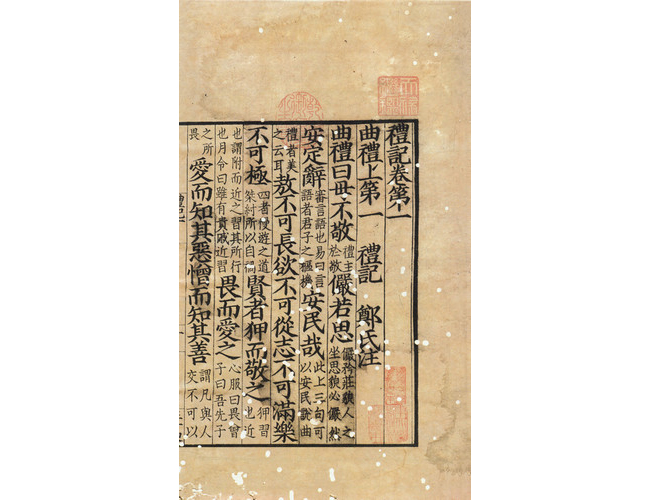 禮記卷第一
曲禮上第一 禮記 鄭氏注
曲禮曰毋不敬禮主於敬儼若思儼矜莊貌人之坐思貌必儼然
安定辭審言語也易曰言語者君子之樞機安民哉此上三句可以安民說曲
禮者美之云耳敖不可長欲不可從志不可滿樂
不可極四者慢遊之道桀紂所以自禍賢者狎而敬之狎習也近
也謂附而近之習其所行也月令曰雖有貴戚近習畏而愛之心服曰畏曾子曰吾先子
之所畏愛而知其惡憎而知其善謂凡與人交不可以